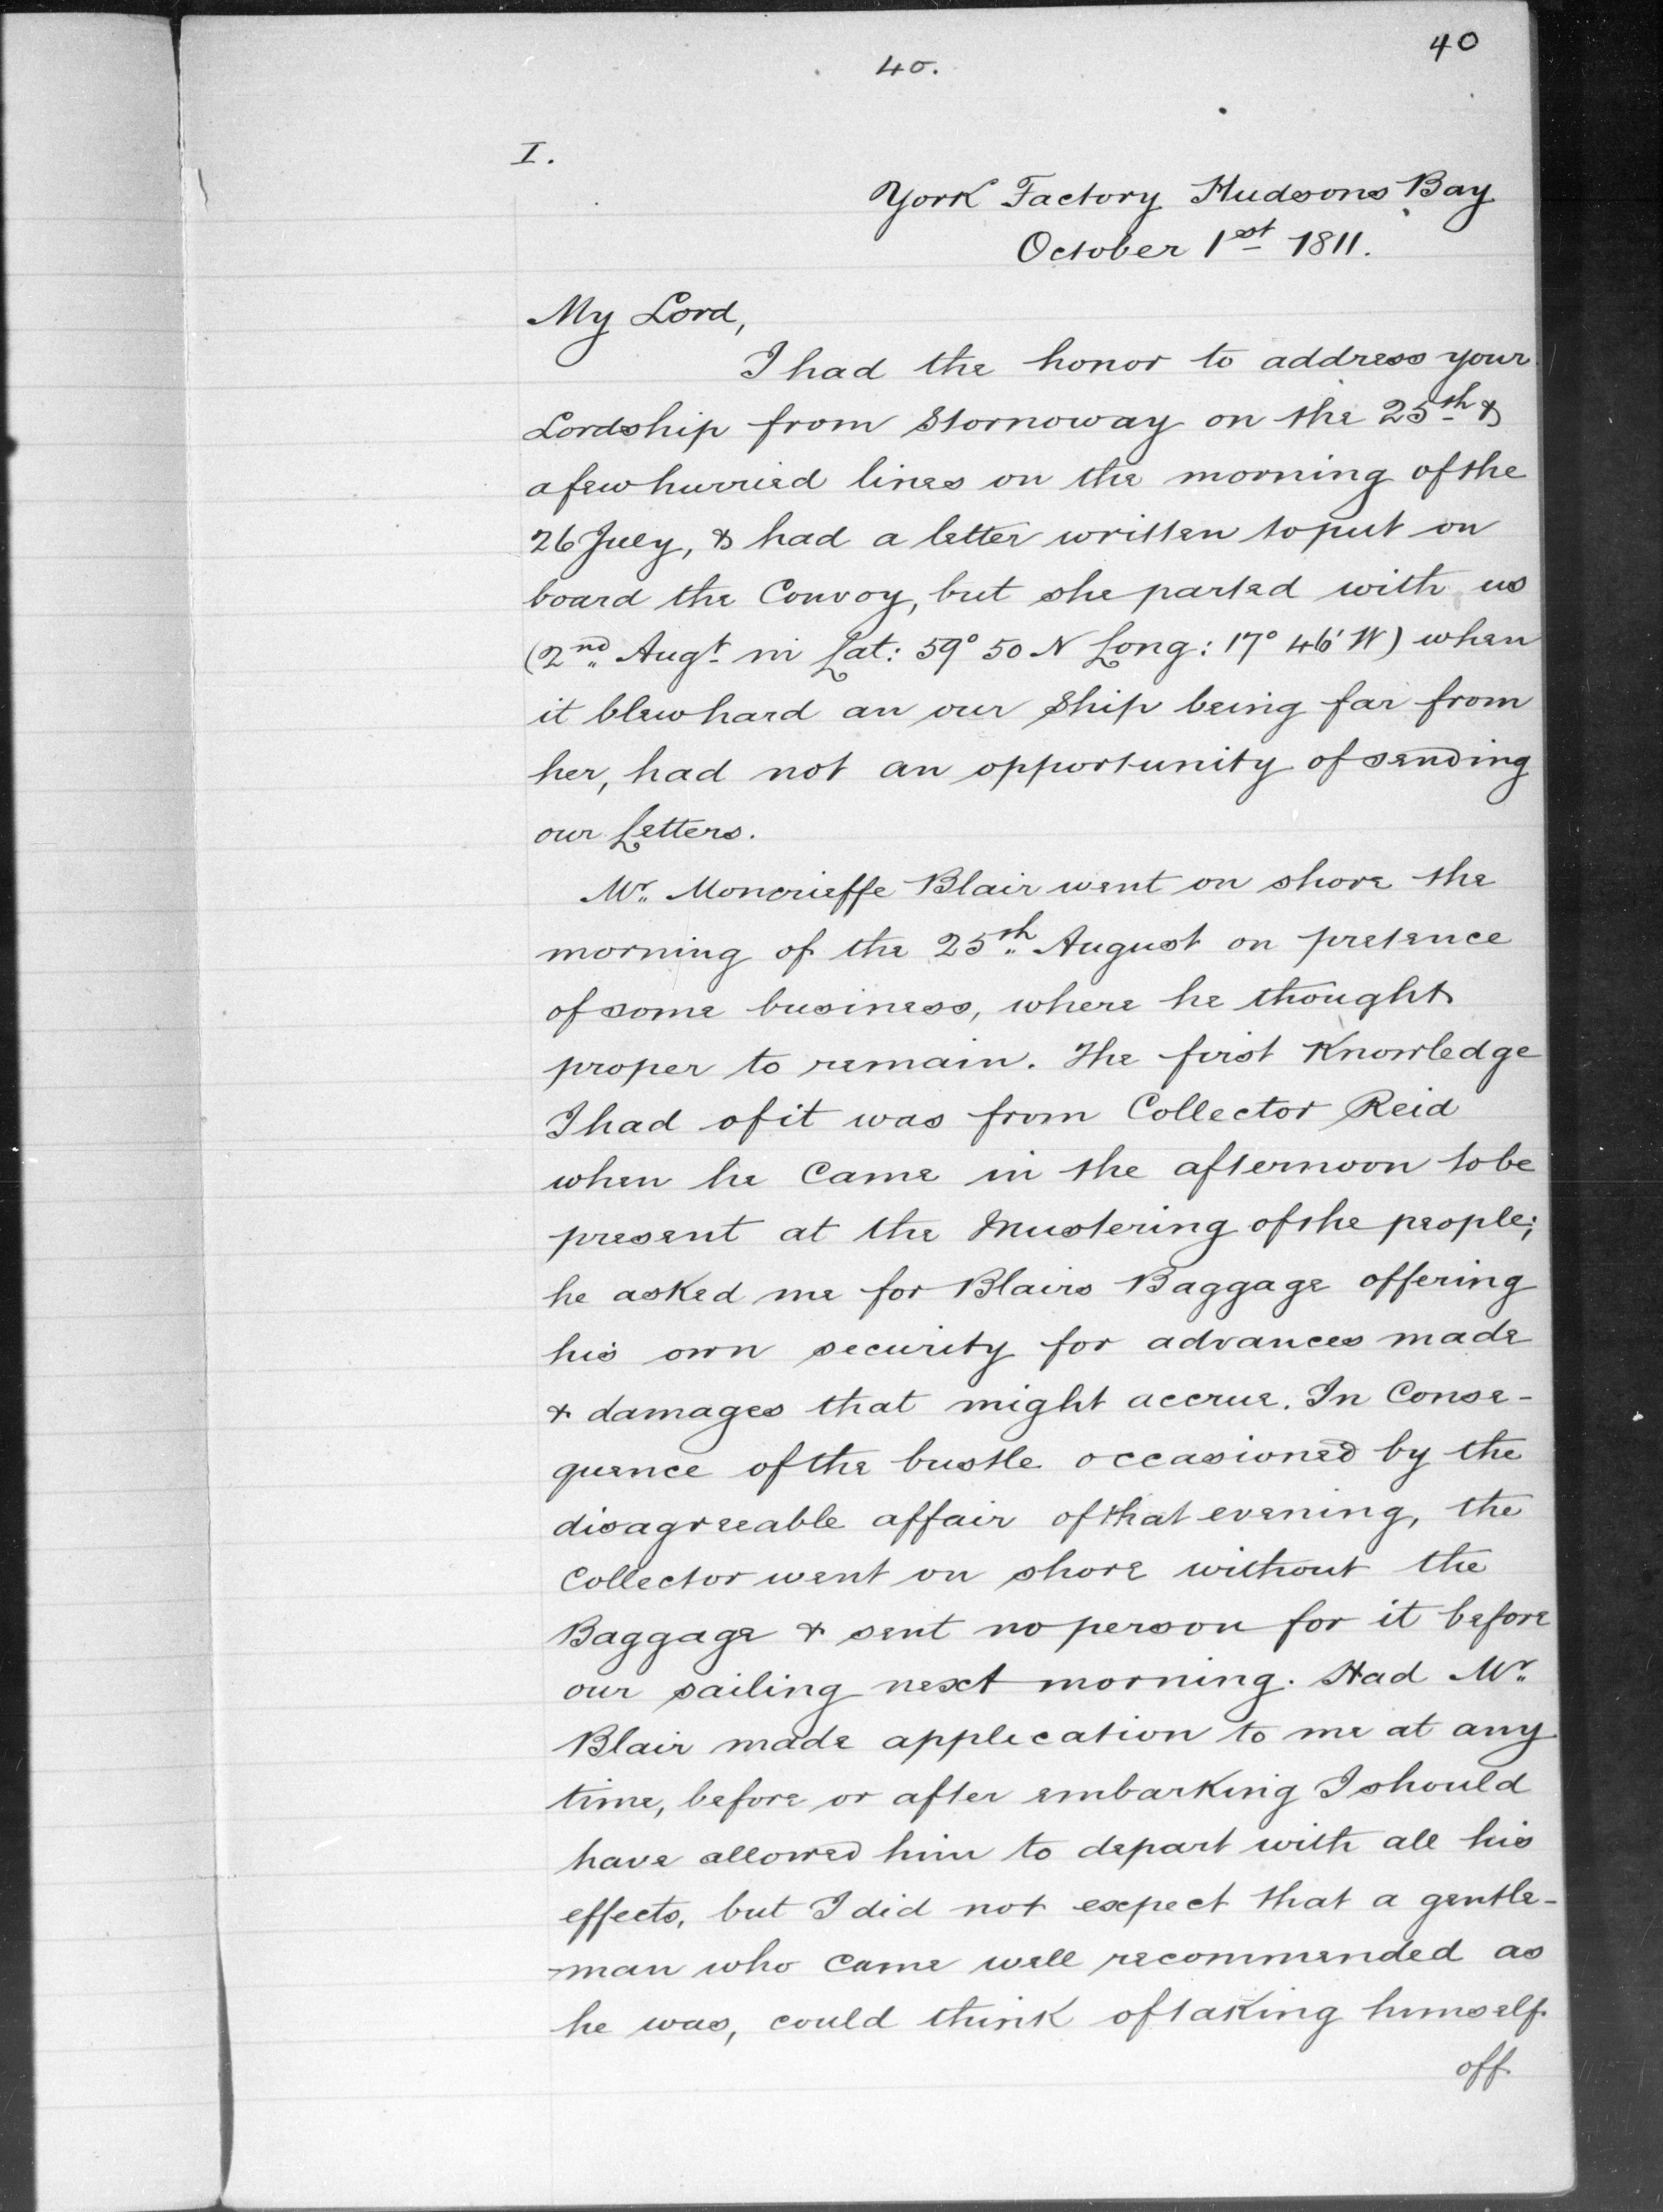 40
40.
I.
York Factory Hudsons Bay
October 1st 1811.
My Lord,
I had the honor to address your
Lordship from Stornoway on the 25th &
a few hurried lines on the morning of the
26 July, & had a letter written to put on
board the Convoy, but she parted with us
(2nd Augt in Lat: 59° 50 N Long: 17° 46' W) when
it blew hard an our Ship being far from
her, had not an opportunity of sending
our Letters.
Mr. Moncrieffe Blair went on shore the
morning of the 25th August on pretence
of some business, where he thought
proper to remain. The first Knowledge
I had of it was from Collector Reid
when he Came in the afternoon to be
present at the Mustering of the people;
he asked me for Blairs Baggage offering
his own security for advances made
& damages that might accrue. In Conse-
quence of the bustle occasioned by the
disagreeable affair of that evening, the
Collector went on shore without the
Baggage & sent no person for it before
our sailing next morning. Had Mr.
Blair made applecation to me at any
time, before or after embarking I should
have allowed him to depart with all his
effects, but I did not expect that a gentle-
-man who came well recommended as
he was, could think of taking himself
off